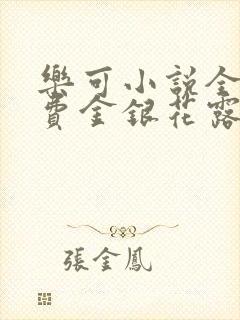 樂可小說全
費金銀花露
張金鳳